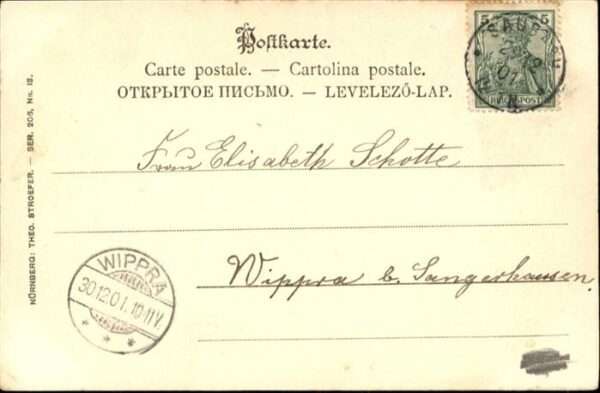 Postkarte.
5 5
REICHSPOST
Carte postale. — Cartolina postale.
ОТКРЫТОЕ ПИСЬМО. — LEVELEZŐ-LAP.
Frau Elisabeth Schotte
Wippra b. Sangerhausen.
WIPPRA
30.12.01.10-11V.
NÜRNBERG: THEO. STROEFER. — SER. 206, No. 18.